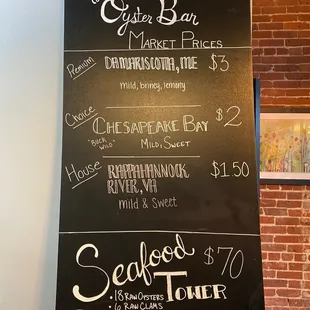 Oyster Bar
Market Prices
Premium
DAMARISCOTTA, ME $3
mild, briney, lemony
Choice
CHESAPEAKE BAY $2
"BUCK WILD"
MILD, SWEET
House
RAPPAHANNOCK RIVER, VA $1.50
mild & Sweet
Seafood $70
TOWER
• 18 RAW OYSTERS
• 6 RAW CLAMS